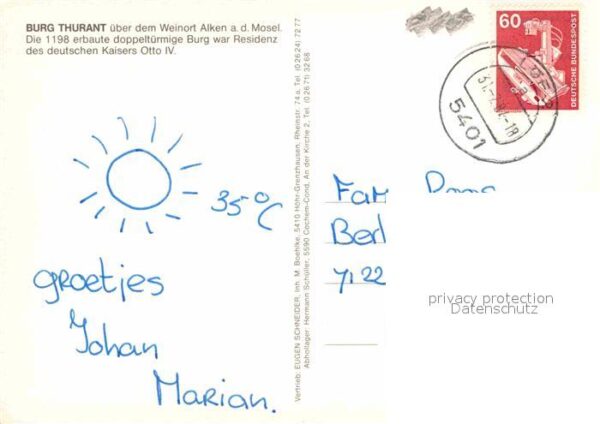 BURG THURANT über dem Weinort Alken a. d. Mosel.
Die 1198 erbaute doppeltürmige Burg war Residenz
des deutschen Kaisers Otto IV.
35°C
groetjes
Johan
Marian.
Vertrieb: EUGEN SCHNEIDER, Inh. M. Boehlke, 5410 Höhr-Grenzhausen, Rheinstr. 74 a, Tel. (0 26 24) 72 77
Abhollager: Hermann Schüller, 5590 Cochem-Cond, An der Kirche 2, Tel. (0 26 71) 32 68
60
DEUTSCHE BUNDESPOST
5401
Fam
Berl
7122
privacy protection
Datenschutz